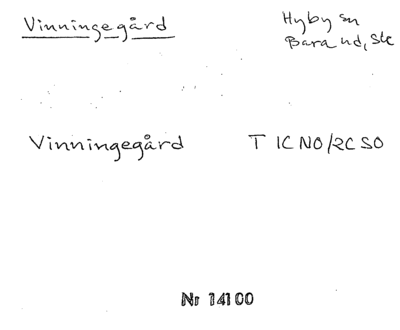 Vinningegård
Hyby sn
Bara hd, Sk
Vinningegård T 1C NO/2C SO
Nr 14100